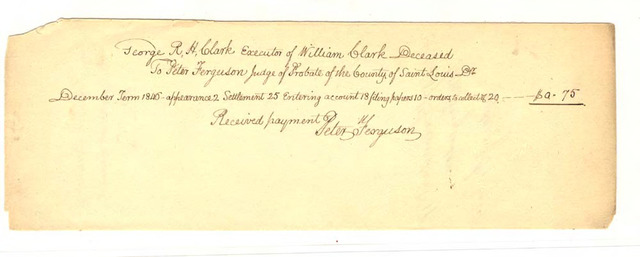 George R. H. Clark Executor of William Clark Deceased
To Peter Ferguson Judge of Probate of the County of Saint Louis Dr.
December Term 1846 - appearance 2 Settlement 25 Entering account 18 filing papers 10 - order to collect &c 20 $0 - 75
Received payment
Peter Ferguson